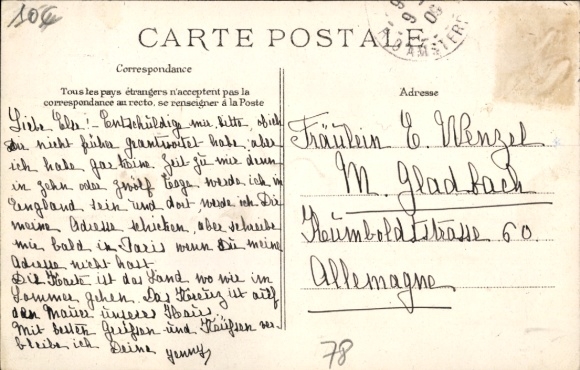 10 €
CARTE POSTALE
AMSTER
Correspondance
Tous les pays étrangers n'acceptent pas la
correspondance au recto. se renseigner à la Poste
Adresse
Liebe Else! - Entschuldig mir bitte, ob ich
Du nicht früher geantwortet habe, aber
ich habe gar keine Zeit zu mir denn
in zehn oder zwölf Tage werde ich in
England sein und dort werde ich Dir
meine Adresse schicken, aber schreibe
mir bald in Paris wenn Du meine
Adresse nicht hast.
Die Karte ist das Land wo wir im
Sommer gehen. Das Kreuz ist auf
den Mauer unseres Haus
Mit besten Grüssen und Küssen ver-
bleibe ich Deine Jenny
Fräulein E. Wenzel
M. Gladbach
Humboldtstrasse 60.
Allemagne
78